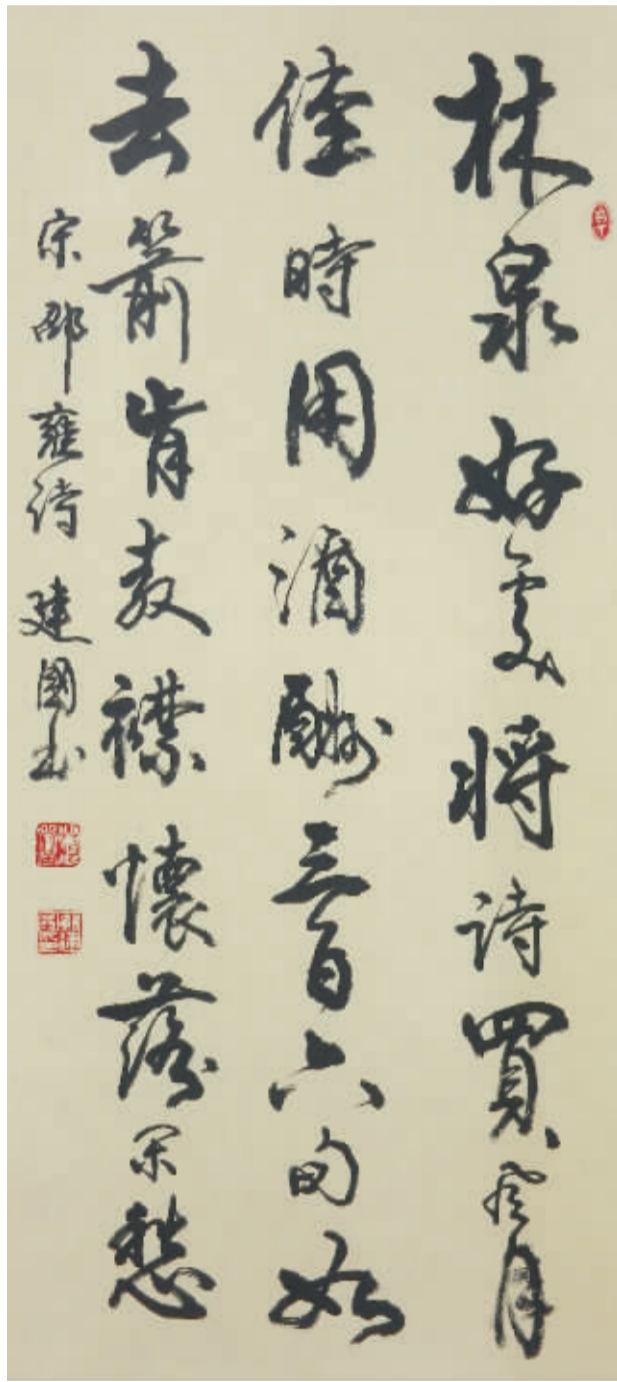 林泉好處將詩買風月
佳時用酒酬三百六旬如
去箭肯教襟懷落閑愁
宋邵雍詩 建國書